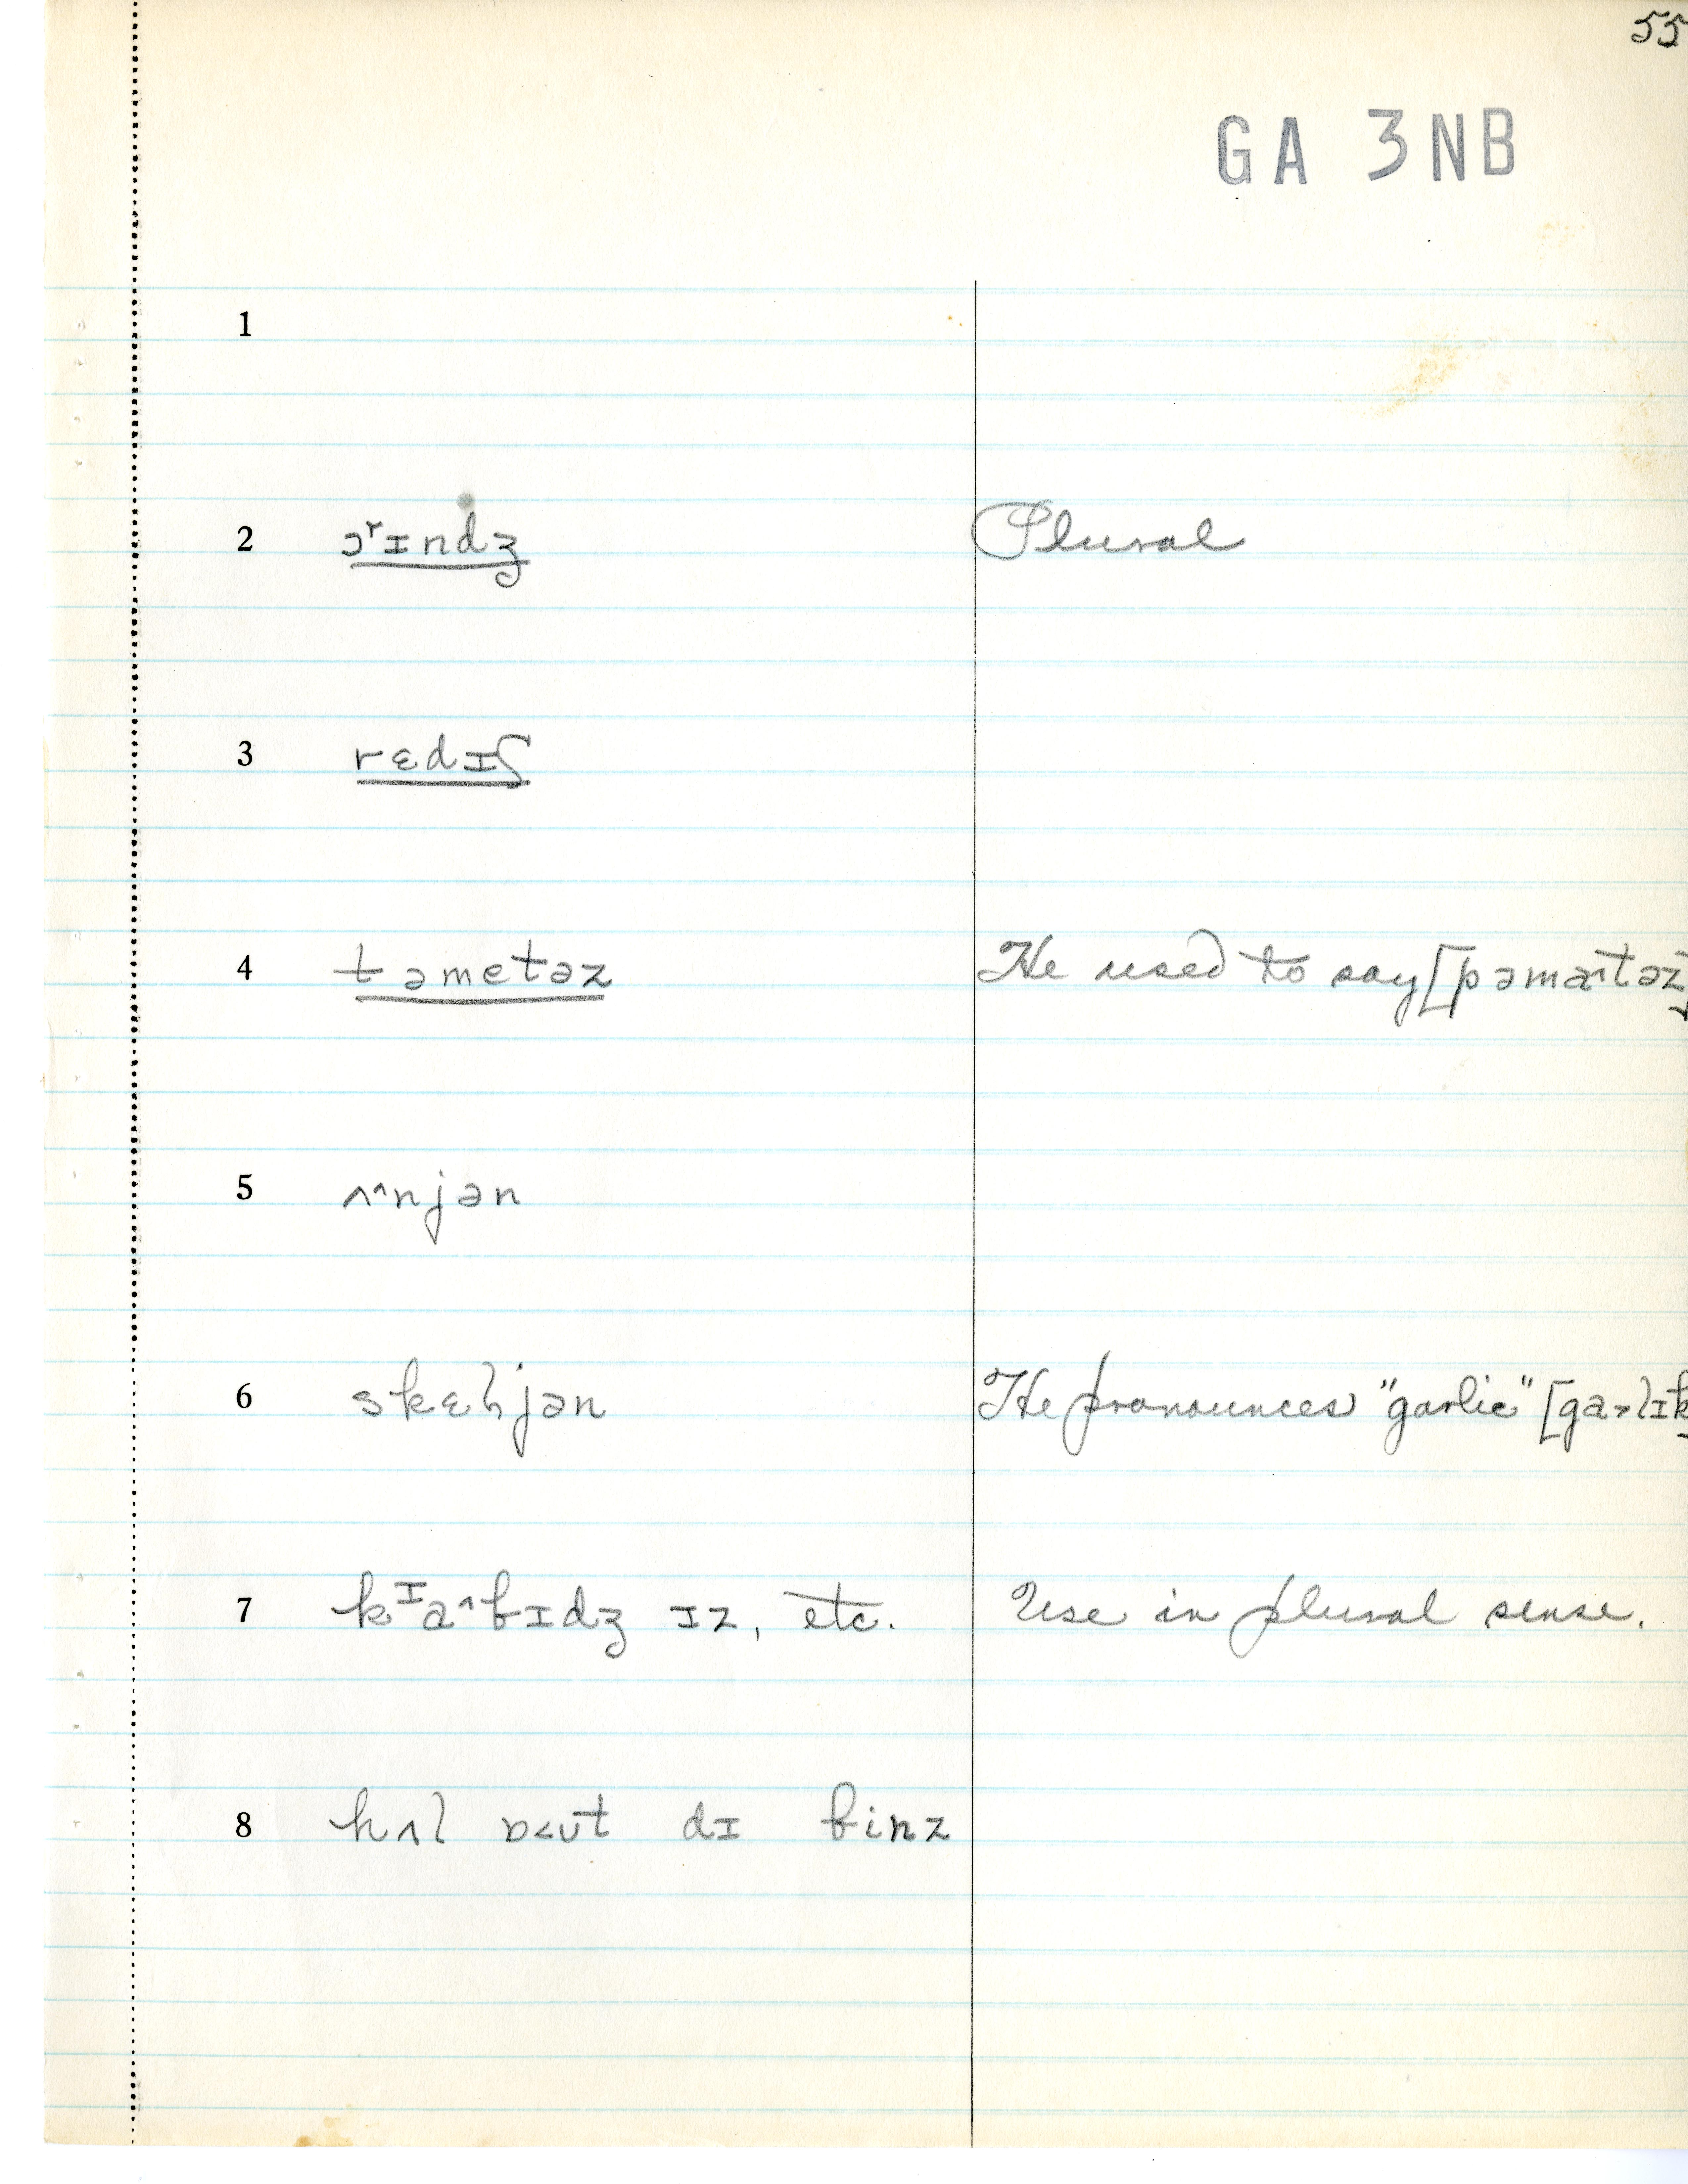 55
GA 3NB
1
2 ɔʳɪndʒ Plural
3 rɛdɪʃ
4 təmetəz He used to say [pəma˄təz]
5 ʌ˄njən
6 skɛljən He pronounces "garlic" [ga˞lɪk]
7 kᶦa˄bɪdʒ ɪz, etc. Use in plural sense.
8 hʌl ɒ˂ʊt dɪ binz